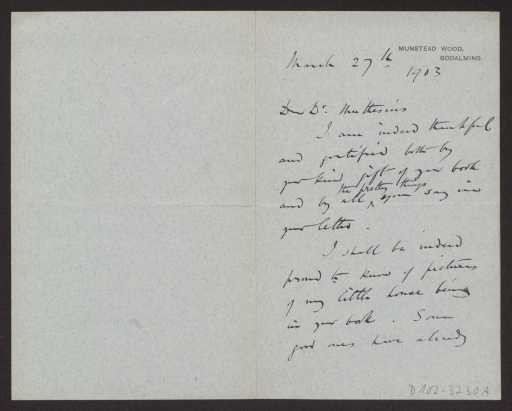 MUNSTEAD WOOD,
GODALMING.
March 27th
1903
Dear Dr. Muthesius
I am indeed thankful
and gratified both by
your kind gift of your book
the pretty things
and by all you say in
your letter.
I shall be indeed
proud to know of pictures
of my little house being
in your book. Some
good ones have already
D 102-3230A